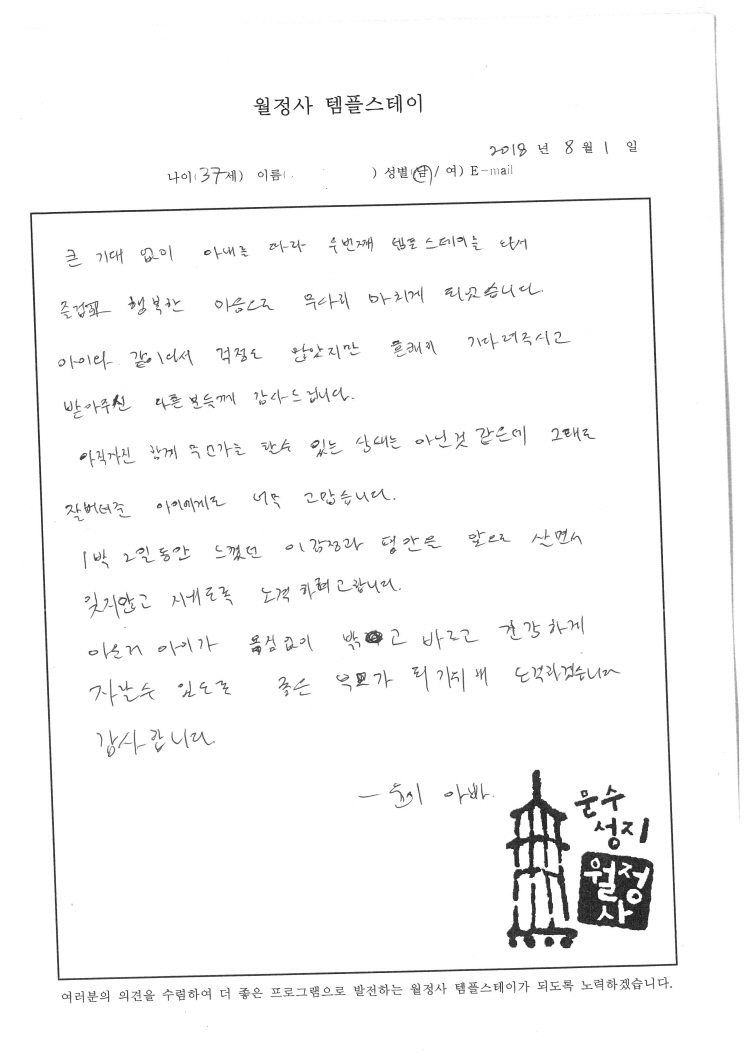 월정사 템플스테이
2018 년 8 월 1 일
나이(37세) 이름( ) 성별(남/ 여) E-mail
큰 기대 없이 아내를 따라 두번째 템플스테이를 와서
즐겁고 행복한 마음으로 무사히 마치게 되었습니다.
아이와 같이와서 걱정도 많았지만 흔쾌히 기다려주시고
받아주신 다른 분들께 감사드립니다.
아직까진 함께 무언가를 할수 있는 상태는 아닌것 같은데 그래도
잘버텨준 아이에게도 너무 고맙습니다.
1박 2일동안 느꼈던 이감정과 평안을 앞으로 살면서
잊지않고 지내도록 노력하려고합니다.
아울러 아이가 욕심없이 밝고 바르고 건강하게
자랄수 있도록 좋은 부모가 되기위해 노력하겠습니다
감사합니다.
- 아빠.
문수
성지
월정
사
여러분의 의견을 수렴하여 더 좋은 프로그램으로 발전하는 월정사 템플스테이가 되도록 노력하겠습니다.